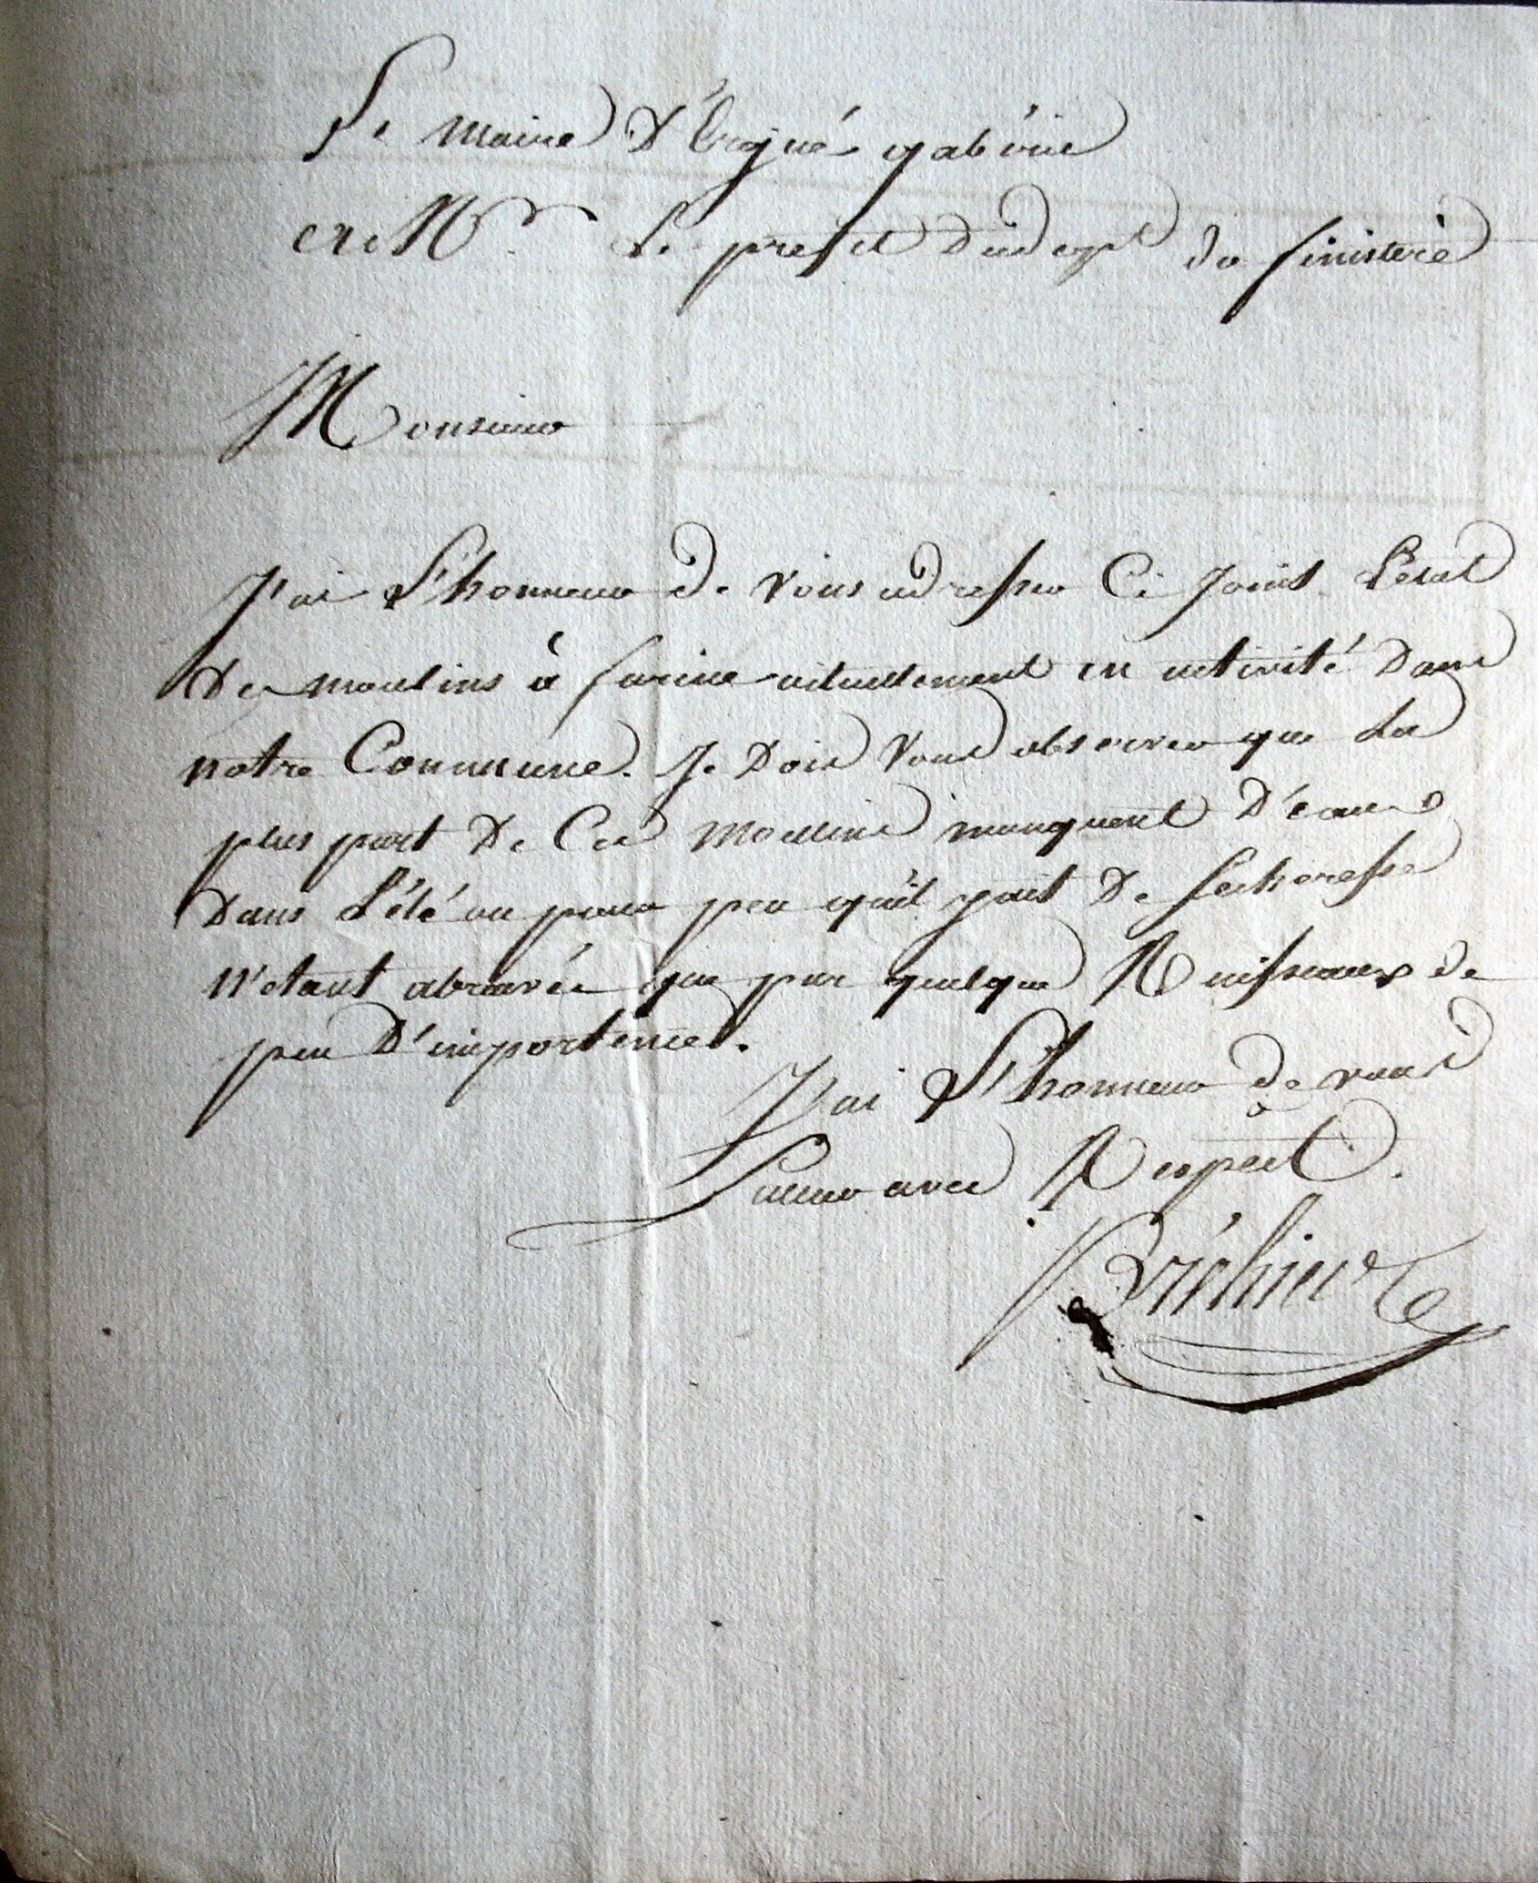 Le maire D'Ergué gabéric
à Mr. Le prefet du dept du finistere
Monsieur
J'ai L'honneur de vous adresser Ci Joint L'etat
Des moulins à farine actuellement en activité Dans
notre Commune. Je Dois Vous observer que La
plus part De Ces Moulins manquent D'eau
Dans L'été ou pour peu qu'il y ait De secheresse
N'étant abreuvés que par quelque Ruisseaux de
peu D'importence.
J'ai L'honneur de vous
saluer avec Respect.
Bréhier